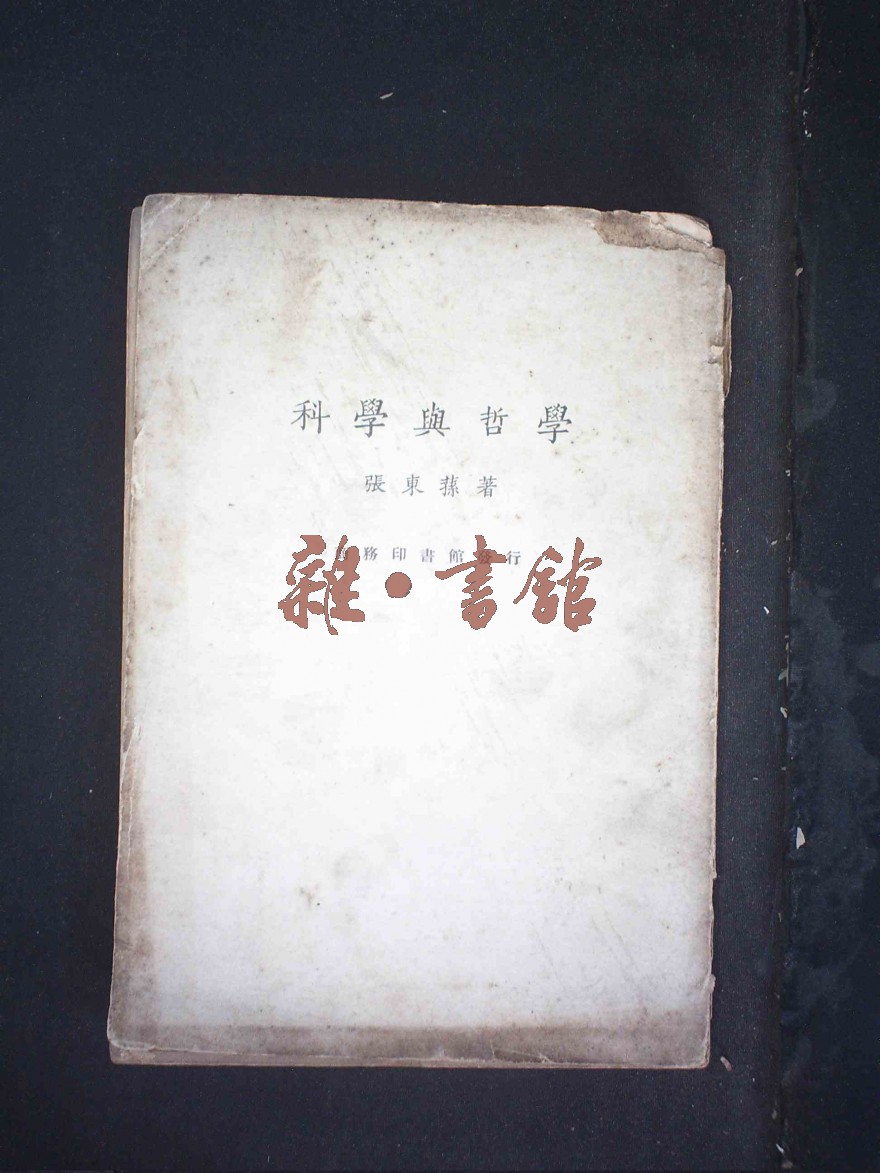 科學與哲學
張東蓀著
商務印書館發行
雜·書館